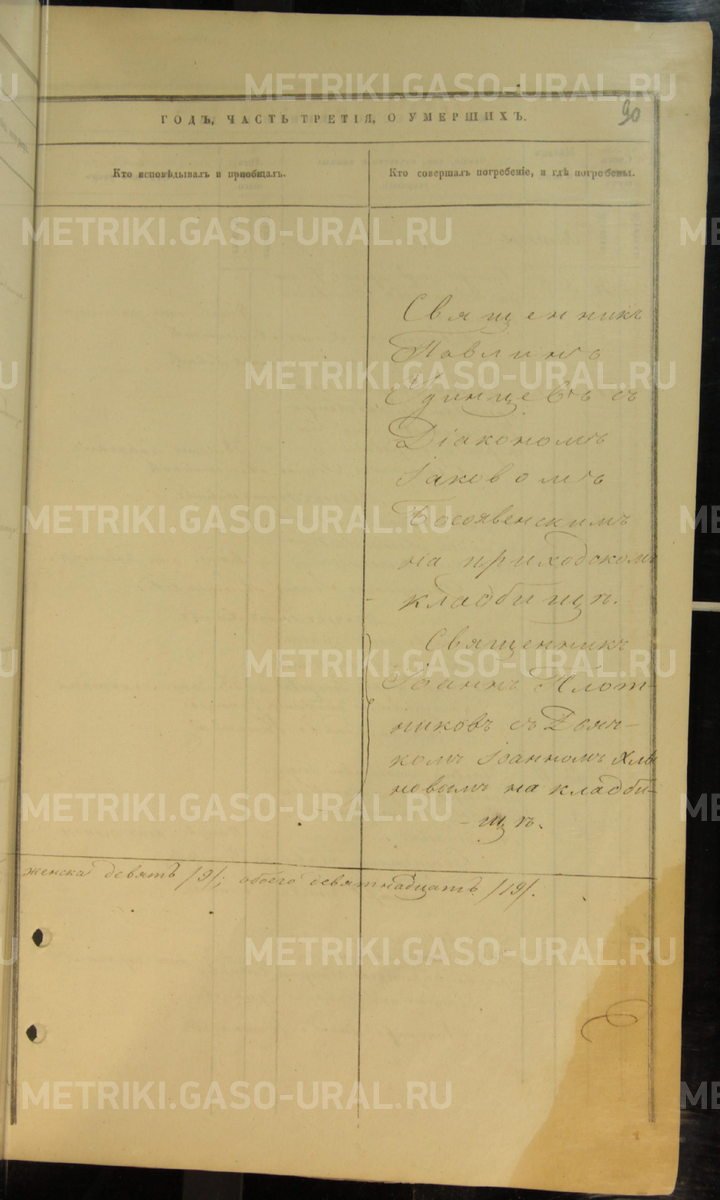 METRIKI.GASO-URAL.RU
90
ГОДЪ, ЧАСТЬ ТРЕТІЯ, О УМЕРШИХЪ.
Кто исповѣдывалъ и пріобщалъ.
Кто совершалъ погребеніе, и гдѣ погребены.
METRIKI.GASO-URAL.RU
Священникъ
Павлинъ
METRIKI.GASO-URAL.RU
Удинцевъ съ
Діакономъ
Іаковомъ
METRIKI.GASO-URAL.RU
на приходскомъ
кладбищѣ.
Священникъ
METRIKI.GASO-URAL.RU
Іоаннъ Плот-
никовъ съ Дьяч-
комъ Іоанномъ Хлы
новымъ на кладби-
METRIKI.GASO-URAL.RU
щѣ.
женска девять /9/; обоего девятнадцать /19/.
METRIKI.GASO-URAL.RU
METRIKI.GASO-URAL.RU